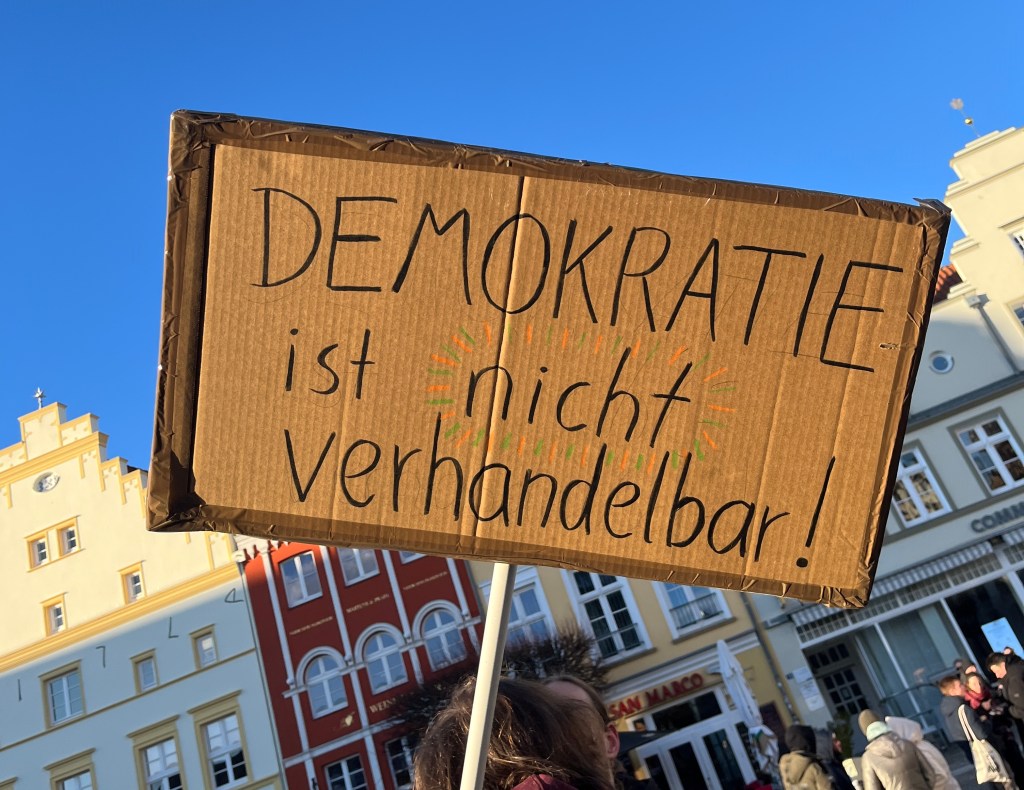 DEMOKRATIE
ist nicht
verhandelbar!
SAN MARCO
COMM